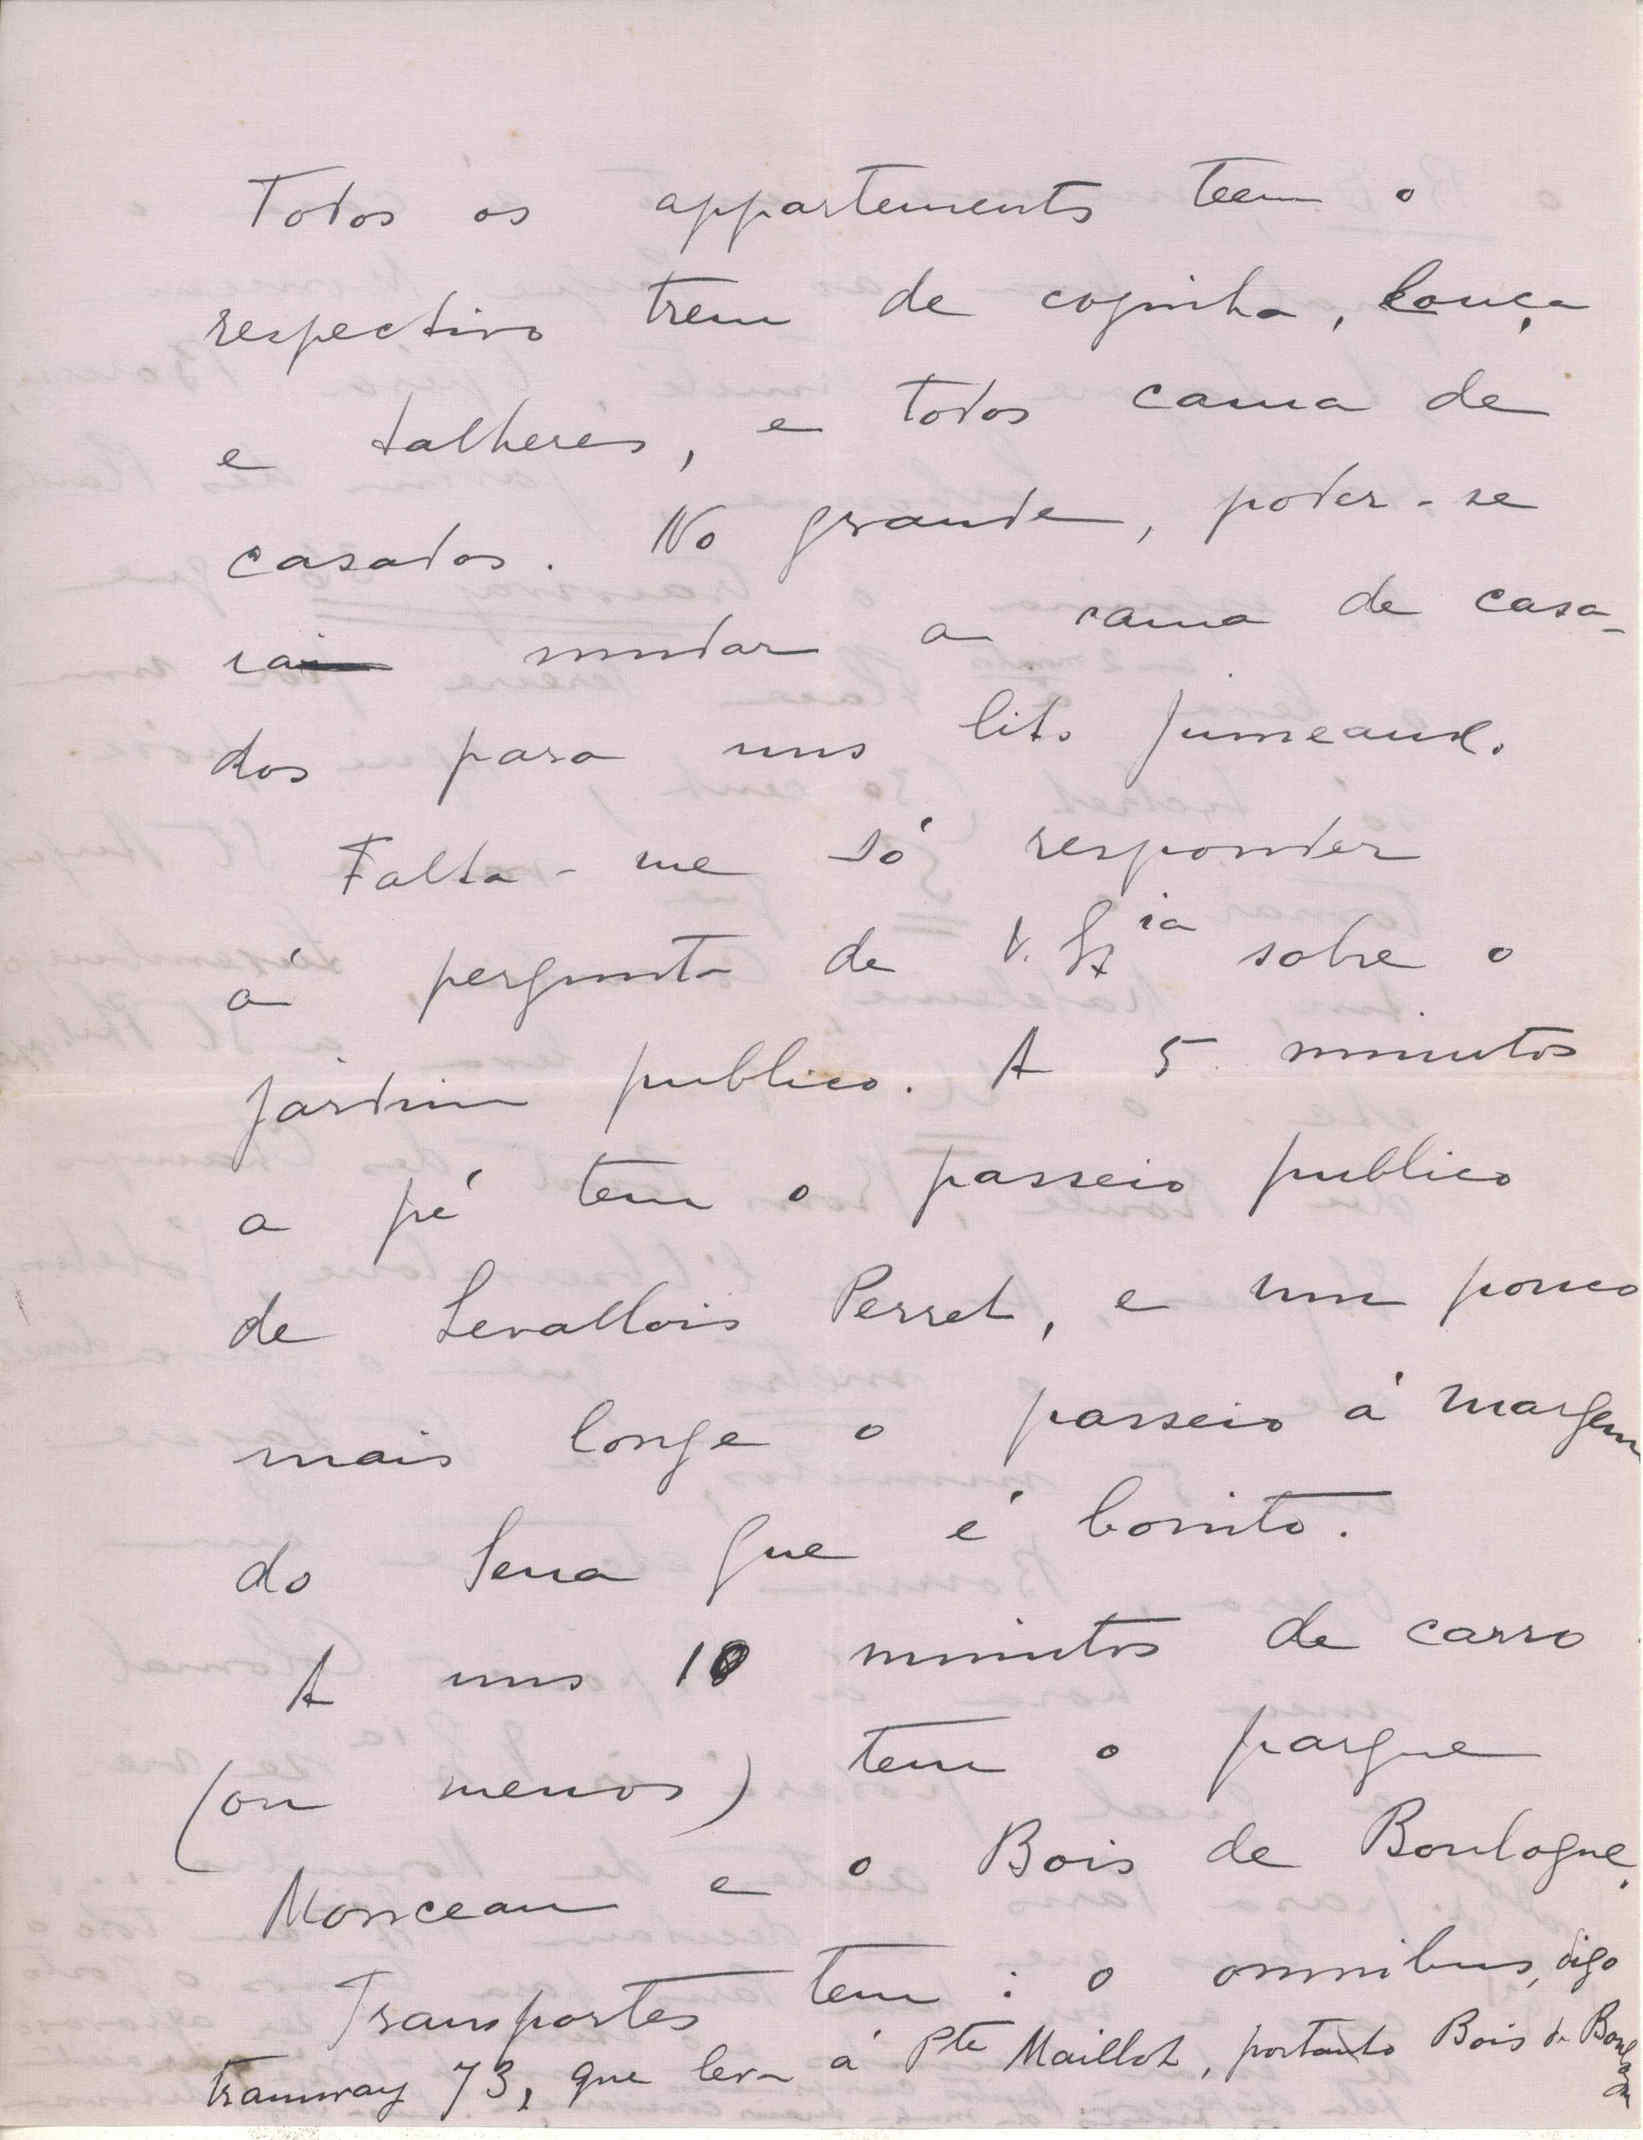 Todos os appartements teem o
respectivo trem de cozinha, louça
e talheres, e todos cama de
casados. No grande, poder-se
ia mudar a cama de casa-
dos para uns lits jumeaux.
Falta-me só responder
á pergunta de V. Ex ia sobre o
jardim publico. A 5 minutos
a pé tem o passeio publico
de Levallois Perret, e um pouco
mais longe o passeio á margem
do Sena que é bonito.
A uns 10 minutos de carro
(ou menos) tem o parque
Monceau e o Bois de Boulogne.
Transportes tem: o omnibus, digo
tramway 73, que leva á Pte Maillot, portanto Bois de Boulogne